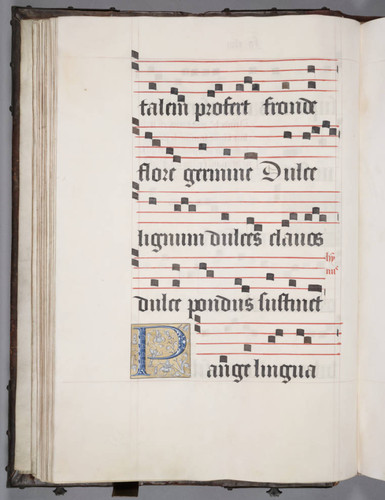 talem profert fronde
flore germine Dulce
lignum dulces clavos
hỹ
nus
dulce pondus sustinet
Pange lingua